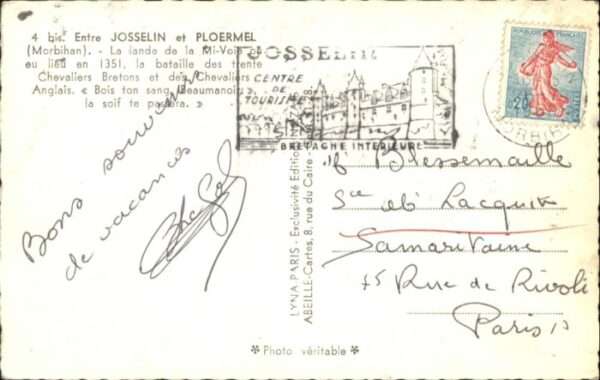 4 bis. Entre JOSSELIN et PLOERMEL
(Morbihan). - La lande de la Mi-Voie où
eu lieu en 1351, la bataille des trente
Chevaliers Bretons et des Chevaliers
Anglais. « Bois ton sang Beaumanoir,
la soif te passera. »
Bons souvenirs
de vacances
JOSSELIN
CENTRE
DE
TOURISME
BRETAGNE INTERIEURE
REPUBLIQUE FRANÇAISE
0,20
MORBIHAN
LYNA-PARIS - Exclusivité Edition
ABEILLE-Cartes, 8, rue du Caire
Blessemaille
Sce
Samaritaine
75 Rue de Rivoli
Paris
* Photo véritable *